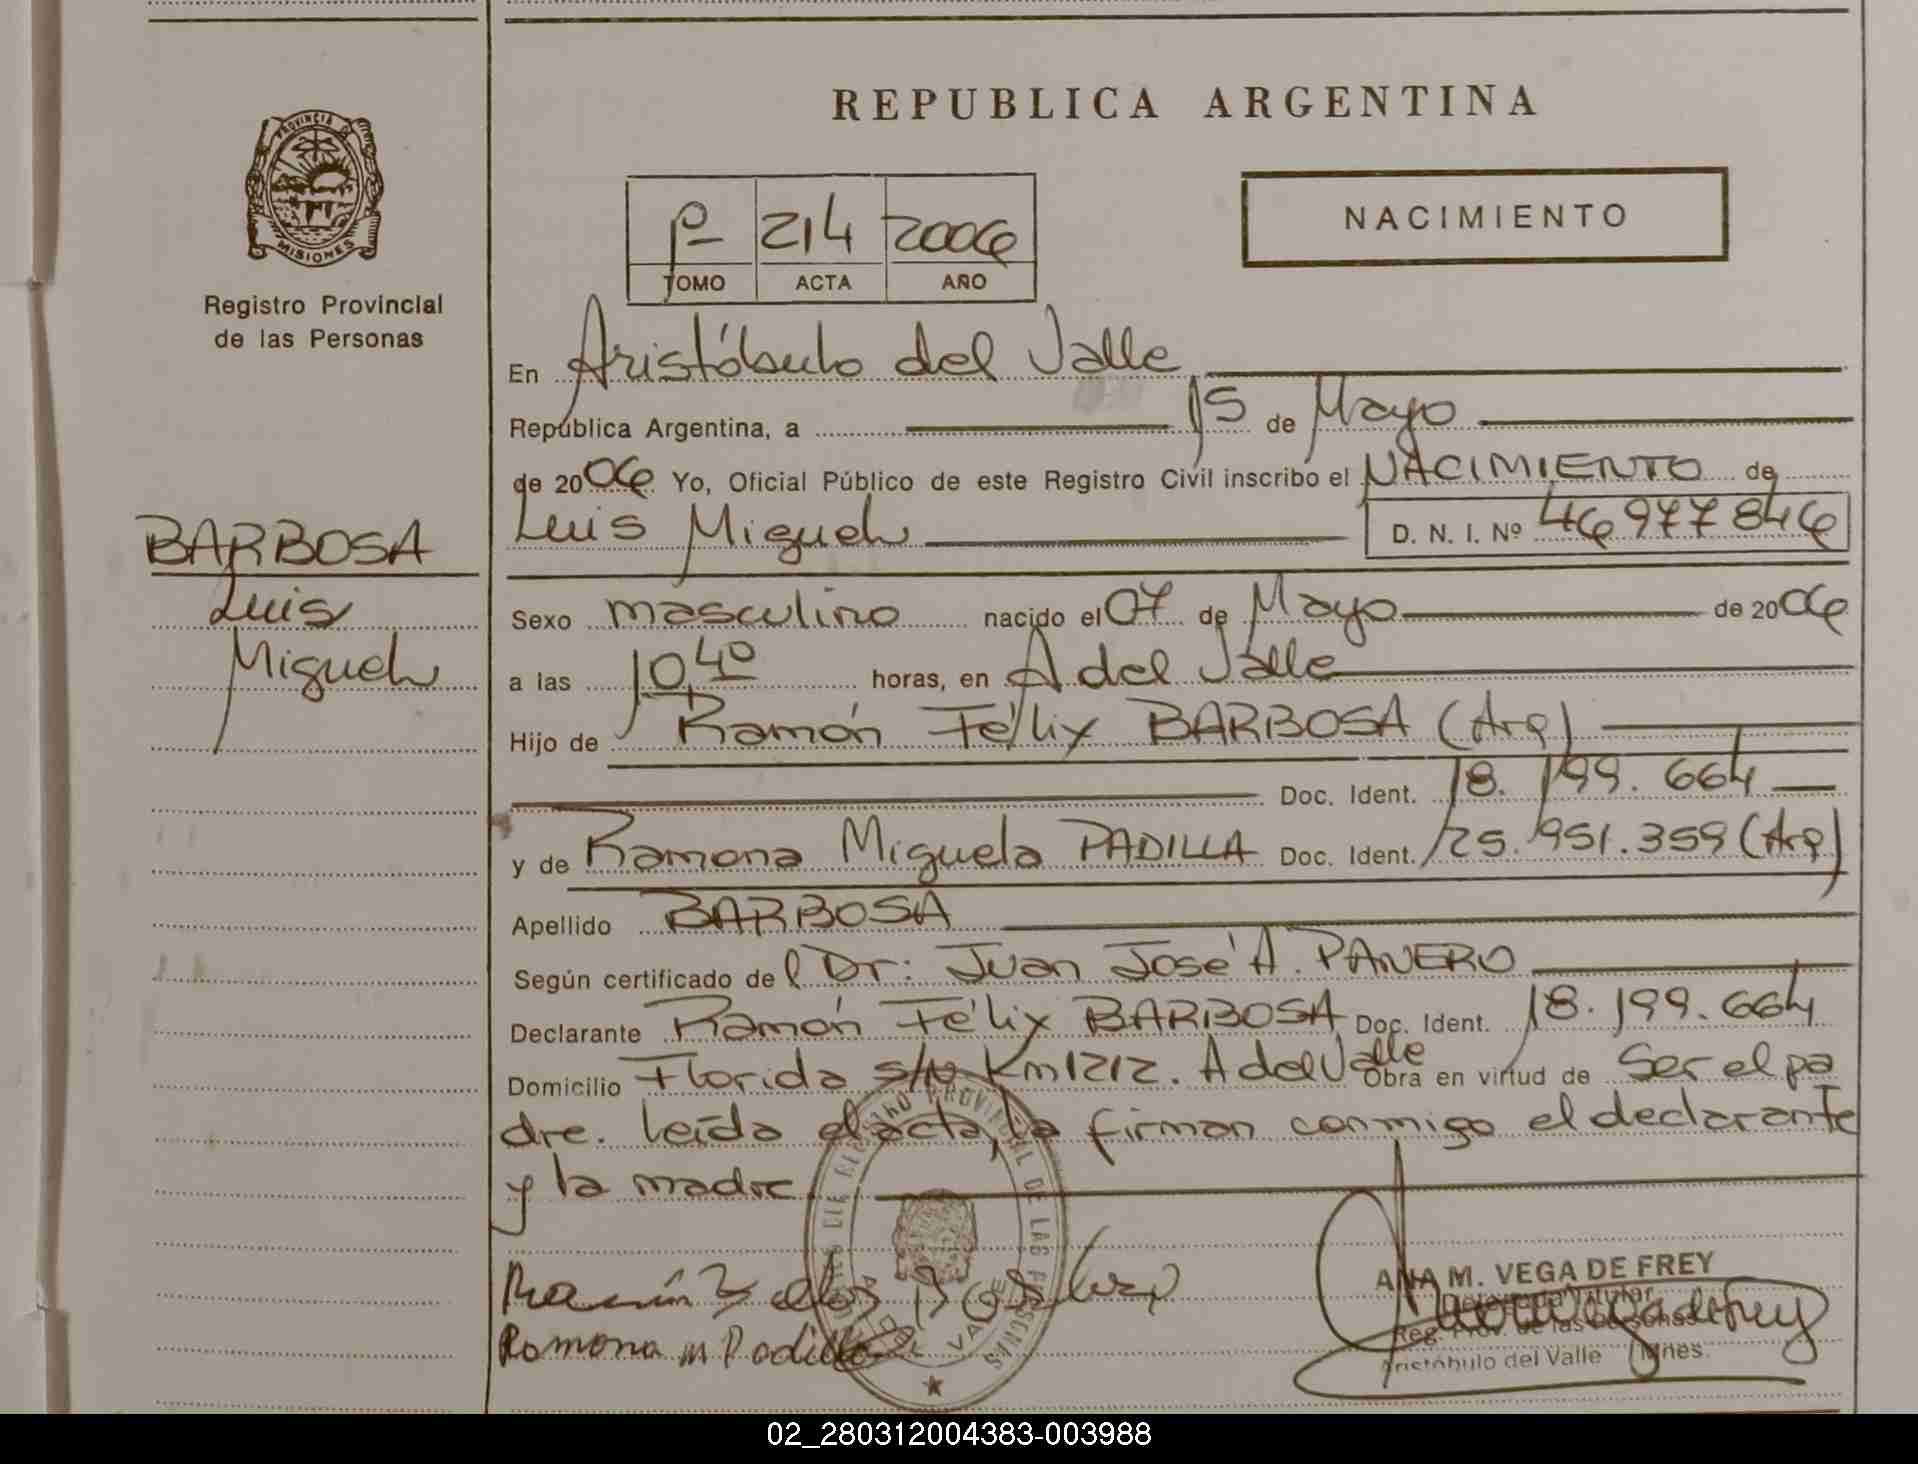 REPUBLICA ARGENTINA
PROVINCIA D MISIONES
Registro Provincial
de las Personas
Pº 214 2006
TOMO ACTA AÑO
NACIMIENTO
En Aristóbulo del Valle
República Argentina, a 15 de Mayo
de 2006 Yo, Oficial Público de este Registro Civil inscribo el NACIMIENTO de
Luis Miguel D. N. I. Nº 46977846
BARBOSA
Luis
Miguel
Sexo masculino nacido el 07 de Mayo de 2006
a las 10,40 horas, en A del Valle
Hijo de Ramón Félix BARBOSA (Arg)
Doc. Ident. 18.199.664
y de Ramona Miguela PADILLA Doc. Ident. 25.951.359 (Arg)
Apellido BARBOSA
Según certificado del Dr: Juan José A. PANERO
Declarante Ramón Félix BARBOSA Doc. Ident. 18.199.664
Domicilio Florida s/N Km1212. A del Valle Obra en virtud de Ser el pa
dre. leída el acta, la firman conmigo el declarante
y la madre
REGISTRO PROVINCIAL DE LAS PERSONAS
DEL VALLE
Ramona M Padilla
ANA M. VEGA DE FREY
Delegada Titular
Reg. Prov. de las Personas
Aristóbulo del Valle Mnes.
02_280312004383-003988